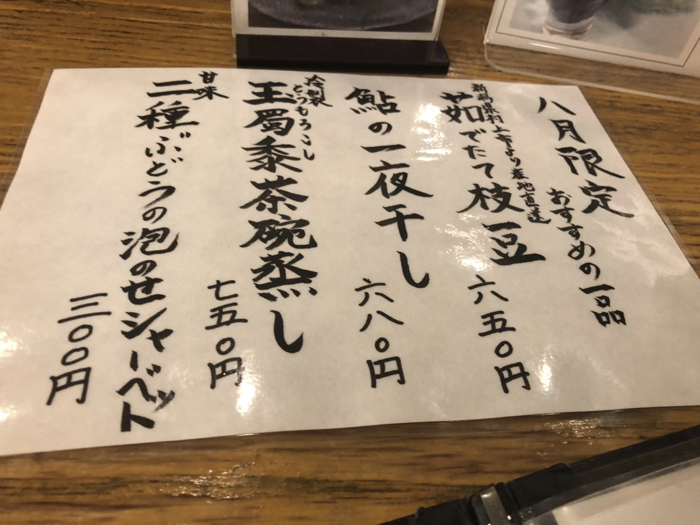 八月限定
おすすめの一品
新潟県村上市より産地直送
茹でたて枝豆
六五〇円
鮎の一夜干し
六八〇円
冷製
とうもろこし
玉蜀黍茶碗蒸し
七五〇円
甘味
二種ぶどうの泡のせシャーベット
三〇〇円